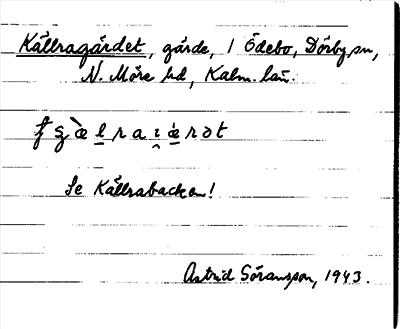 Källragärdet, gärde, 1 Ödebo, Dörby sn,
N. Möre hd, Kalm. län.
Se Källrabacken!
Astrid Göransson, 1943.